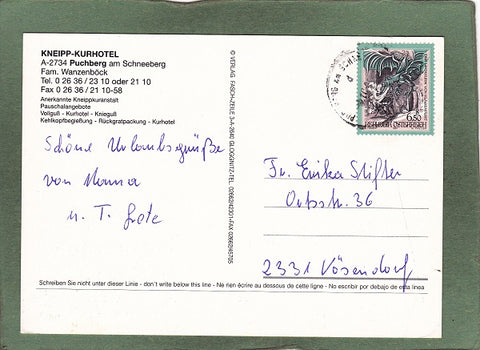 KNEIPP-KURHOTEL
A-2734 Puchberg am Schneeberg
Fam. Wanzenböck
Tel. 0 26 36 / 23 10 oder 21 10
Fax 0 26 36 / 21 10-58
Anerkannte Kneippkuranstalt
Pauschalangebote
Vollguß - Kurhotel - Knieguß
Kehlkopfbegießung - Rückgratpackung - Kurhotel
Schöne Urlaubsgrüße
von Mama
u. T. Grete
© VERLAG FASCH-ZEILE 3-A-2640 GLOGGNITZ-TEL.
6.50
Fr. Erika Stifter
Ortsstr. 36
2331 Vösendorf
Schreiben Sie nicht unter dieser Linie - don't write below this line - Ne rien écrire au dessous de cette ligne - No escribir por debajo de esta línea